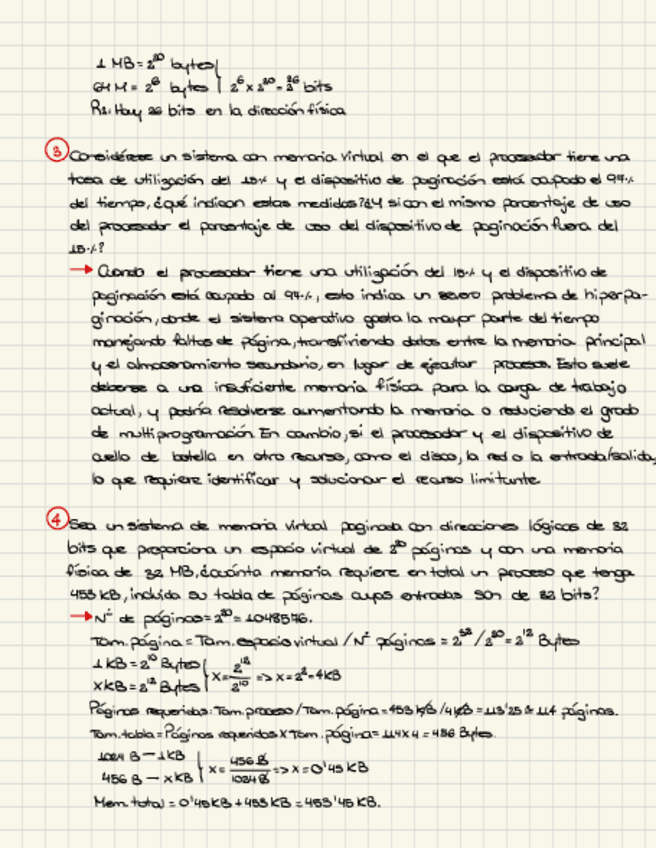 1 MB = 2²⁰ bytes
64 M = 2⁶ bytes } 2⁶ x 2²⁰ = 2²⁶ bits
R1: Hay 26 bits en la dirección física
③ Considérese un sistema con memoria virtual en el que el procesador tiene una
tasa de utilización del 15% y el dispositivo de paginación está ocupado el 97%
del tiempo, ¿qué indican estas medidas? ¿Y si con el mismo porcentaje de uso
del procesador el porcentaje de uso del dispositivo de paginación fuera del
15%?
→ Cuando el procesador tiene una utilización del 15% y el dispositivo de
paginación está ocupado al 97%, esto indica un severo problema de hiperpa-
ginación, donde el sistema operativo gasta la mayor parte del tiempo
manejando faltas de página, transfiriendo datos entre la memoria principal
y el almacenamiento secundario, en lugar de ejecutar procesos. Esto suele
deberse a una insuficiente memoria física para la carga de trabajo
actual, y podría resolverse aumentando la memoria o reduciendo el grado
de multiprogramación. En cambio, si el procesador y el dispositivo de
cuello de botella en otro recurso, como el disco, la red o la entrada/salida,
lo que requiere identificar y solucionar el recurso limitante.
④ Sea un sistema de memoria virtual paginada con direcciones lógicas de 32
bits que proporciona un espacio virtual de 2²⁰ páginas y con una memoria
física de 32 MB, ¿cuánta memoria requiere en total un proceso que tenga
453 KB, incluida su tabla de páginas cuyas entradas son de 32 bits?
→ Nº de páginas = 2²⁰ = 1048576.
Tam. página = Tam. espacio virtual / Nº páginas = 2³² / 2²⁰ = 2¹² Bytes
1 KB = 2¹⁰ Bytes
x KB = 2¹² Bytes } x = 2¹² / 2¹⁰ => x = 2² = 4 KB
Páginas requeridas: Tam. proceso / Tam. página = 453 KB / 4 KB = 113'25 ≈ 114 páginas.
Tam. tabla = Páginas requeridas x Tam. página = 114 x 4 = 456 Bytes.
1024 B — 1 KB
456 B — x KB } x = 456 B / 1024 B => x = 0'45 KB
Mem. total = 0'45 KB + 453 KB = 453'45 KB.